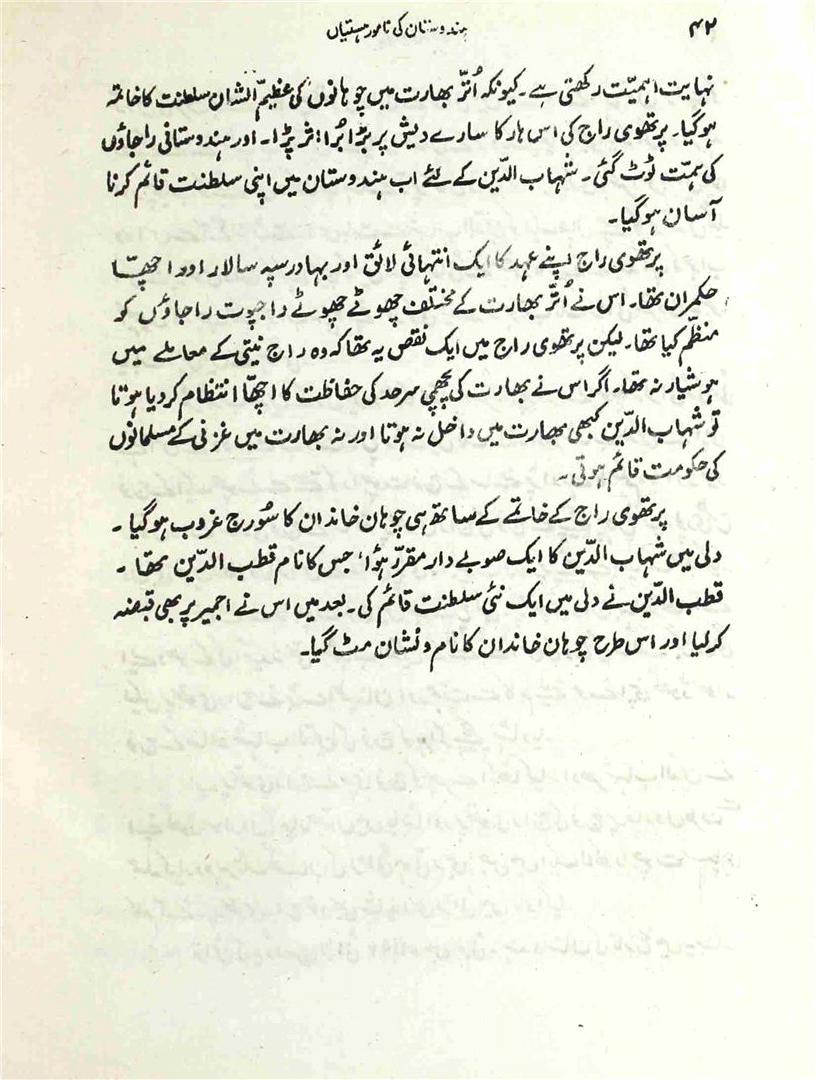 ۴۲
ہندوستان کی نامور ہستیاں
نہایت اہمیّت رکھتی ہے۔ کیونکہ اُتّر بھارت میں چوہانوں کی عظیمّ الشان سلطنت کا خاتمہ
ہوگیا۔ پرتھوی راج کی اس ہار کا سارے دیش پر بڑا بُرا اثر پڑا۔ اور ہندوستانی راجاؤں
کی ہمّت ٹوٹ گئی۔ شہاب الدّین کے لئے اب ہندوستان میں اپنی سلطنت قائم کرنا
آسان ہوگیا۔
پرتھوی راج اپنے عہد کا ایک انتہائی لائق اور بہادر سپہ سالار اور اچھّا
حکمران تھا۔ اس نے اُتّر بھارت کے مختلف چھوٹے چھوٹے راجپوت راجاؤں کو
منظّم کیا تھا۔ لیکن پرتھوی راج میں ایک نقص یہ تھا کہ وہ راج نیتی کے معاملے میں
ہوشیار نہ تھا۔ اگر اس نے بھارت کی پچھّمی سرحد کی حفاظت کا اچھّا انتظام کردیا ہوتا
تو شہاب الدّین کبھی بھارت میں داخل نہ ہوتا اور نہ بھارت میں غزنی کے مسلمانوں
کی حکومت قائم ہوتی۔
پرتھوی راج کے خاتمے کے ساتھ ہی چوہان خاندان کا سُورج غروب ہوگیا۔
دلی میں شہاب الدّین کا ایک صوبے دار مقرّر ہُؤا، جس کا نام قطب الدّین تھا۔
قطب الدّین نے دلی میں ایک نئی سلطنت قائم کی۔ بعد میں اس نے اجمیر پر بھی قبضہ
کرلیا اور اس طرح چوہان خاندان کا نام و نشان مٹ گیا۔